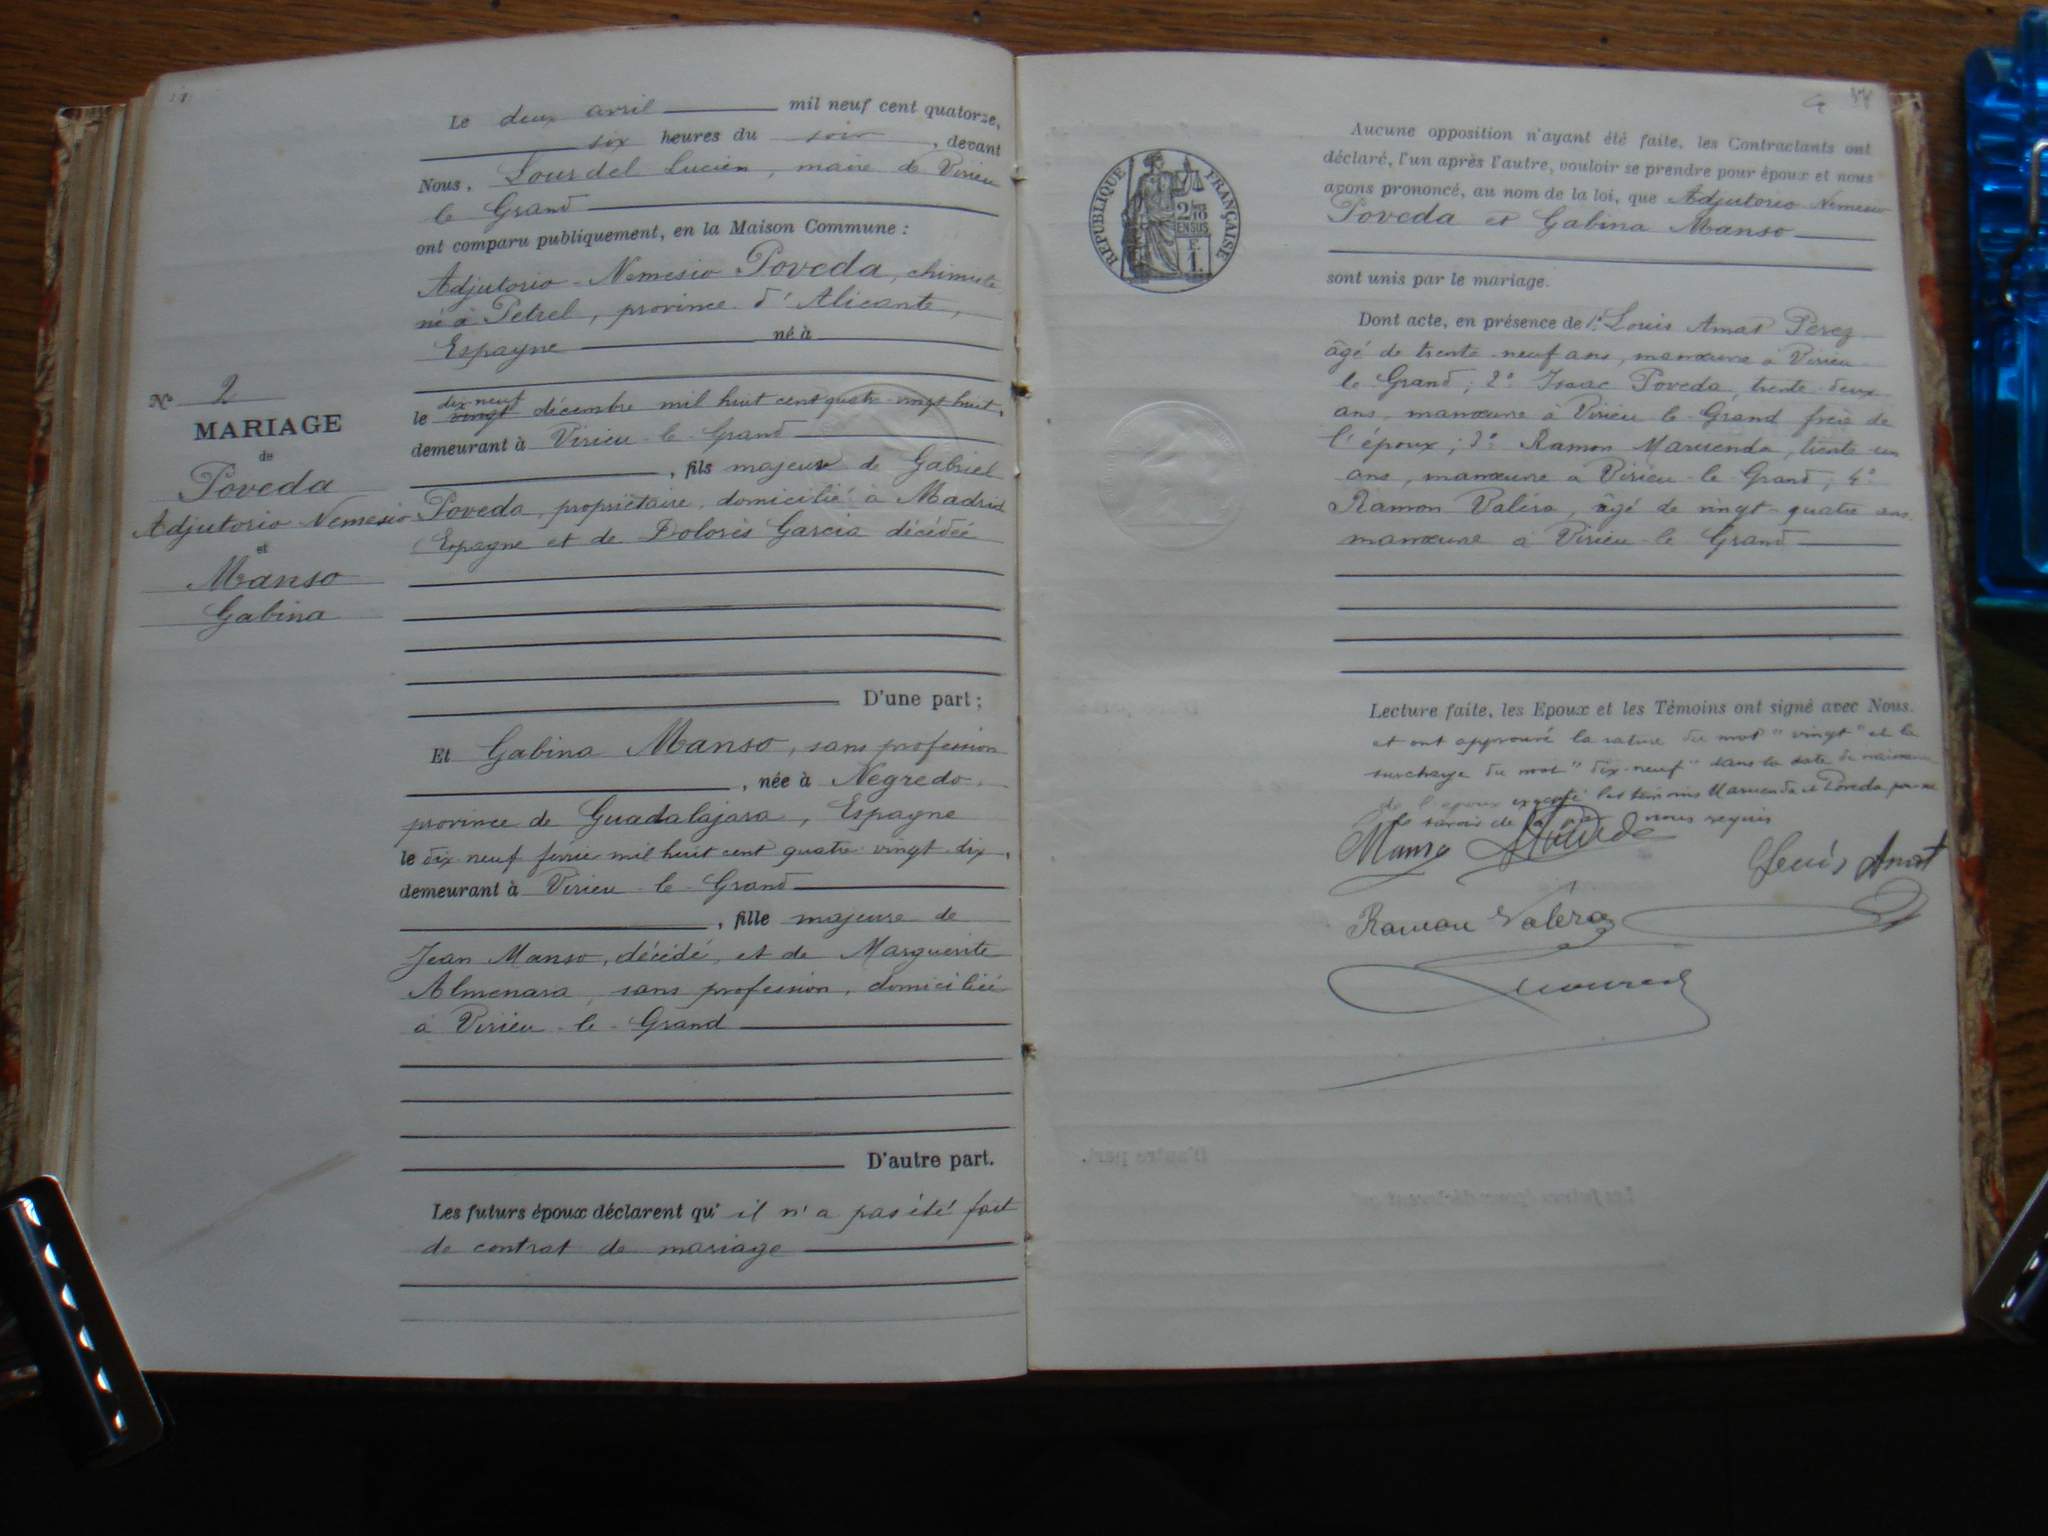 Le deux avril mil neuf cent quatorze,
six heures du soir, devant
Nous, Lourdel Lucien, maire de Virieu
le Grand
ont comparu publiquement, en la Maison Commune :
Adjutorio-Nemesio Poveda, chimiste
né à Petrel, province d'Alicante,
Espagne né à
dix-neuf
le vingt décembre mil huit cent quatre-vingt huit,
demeurant à Virieu-le-Grand
, fils majeur de Gabriel
Poveda, propriétaire, domicilié à Madrid
Espagne et de Dolorès Garcia décédée
N° 2
MARIAGE
de
Poveda
Adjutorio Nemesio
et
Manso
Gabina
D'une part ;
Et Gabina Manso, sans profession
, née à Negredo,
province de Guadalajara, Espagne
le dix-neuf février mil huit cent quatre-vingt-dix,
demeurant à Virieu-le-Grand
, fille majeure de
Jean Manso, décédé, et de Marguerite
Almenara, sans profession, domiciliée
à Virieu-le-Grand
D'autre part.
Les futurs époux déclarent qu'il n'a pas été fait
de contrat de mariage
RÉPUBLIQUE FRANÇAISE
2/10
EN SUS
F.
1.
Aucune opposition n'ayant été faite, les Contractants ont
déclaré, l'un après l'autre, vouloir se prendre pour époux et nous
avons prononcé, au nom de la loi, que Adjutorio Nemesio
Poveda et Gabina Manso
sont unis par le mariage.
Dont acte, en présence de 1° Louis Amat Pérez
âgé de trente-neuf ans, manœuvre à Virieu
le Grand ; 2° Isaac Poveda, trente-deux
ans, manœuvre à Virieu-le-Grand frère de
l'époux ; 3° Ramon Maruenda, trente un
ans, manœuvre à Virieu-le-Grand ; 4°
Ramon Valéra, âgé de vingt-quatre ans,
manœuvre à Virieu-le-Grand
Lecture faite, les Epoux et les Témoins ont signé avec Nous.
et ont approuvé la rature du mot "vingt" et la
surcharge du mot "dix-neuf" dans la date de naissance
de l'époux excepté les témoins Maruenda et Poveda pour ne
le savoir de nous requis
Manso
Louis Amat
Ramon Valera